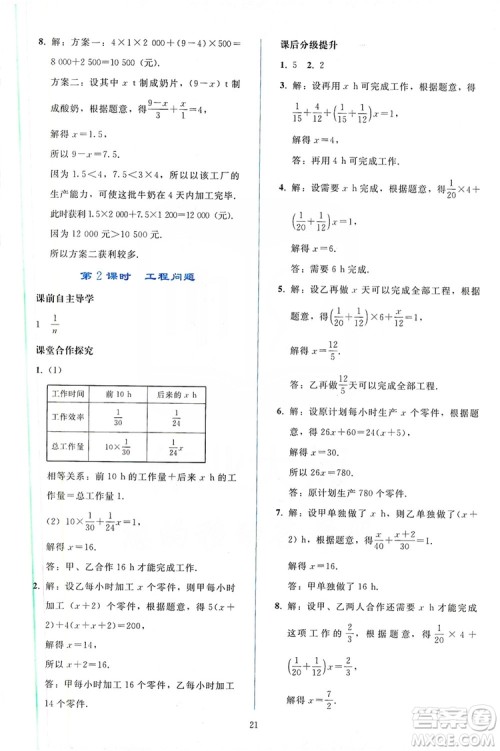 8. 解：方案一：4×1×2 000+(9-4)×500=
10 500(元).
方案二：设其中 x t 制成奶片，(9-x) t 制
成酸奶，根据题意，得 (9-x)/3 + x/1 = 4,
解得 x=1.5,
所以 9-x=7.5.
因为 1.5<4，7.5÷3<4，所以该工厂的
生产能力，可使这批牛奶在 4 天内加工完毕.
此时获利 1.5×2 000+7.5×1 200=
12 000(元).
因为 12 000>10 500,
所以方案二获利较多.
第2课时 工程问题
课前自主导学
1 1/n
课堂合作探究
1. (1)
工作时间 前 10 h 后来的 x h
工作效率 1/30 1/24
总工作量 10×1/30 x/24
相等关系：前 10 h 的工作量+后来 x h 的工
作量=总工作量 1.
(2) 10×1/30+x/24=1,
解得 x=16.
答：甲、乙合作 16 h 才能完成工作.
2. 解：设乙每小时加工 x 个零件，则甲每小时加
工(x+2)个零件，根据题意，得 5(x+2)+
4(2x+2)=200.
解得 x=14.
所以 x+2=16.
答：甲每小时加工 16 个零件，乙每小时加工
14 个零件.
课后分级提升
1. 5 2. 2
3. 解：设再用 x h 可完成工作，根据题意，得
1/15+4/12+(1/15+1/12)x=1,
解得 x=4.
答：再用 4 h 可完成工作.
4. 解：设需要 x h 完成，根据题意，得 1/20×4+
(1/20+1/12)x=1,
解得 x=6.
答：需要 6 h 完成.
5. 解：设乙再做 x 天可以完成全部工程，根据题
意，得(1/20+1/12)×6+x/12=1,
解得 x=12/5.
答：乙再做 12/5 天可以完成全部工程.
6. 解：设原计划每小时生产 x 个零件，根据题
意，得 26x+60=24(x+5),
解得 x=30.
所以 26x=780.
答：原计划生产 780 个零件.
7. 解：设甲单独做了 x h，则乙单独做了
(40-x) h，根据题意，得 x/40+(40-x)/30=1,
解得 x=16.
答：甲单独做了 16 h.
8. 解：设甲、乙两人合作 x h 才能完成
这项工作的 2/3，根据题意，得 1/20×4+
(1/20+1/12)x=2/3,
解得
21